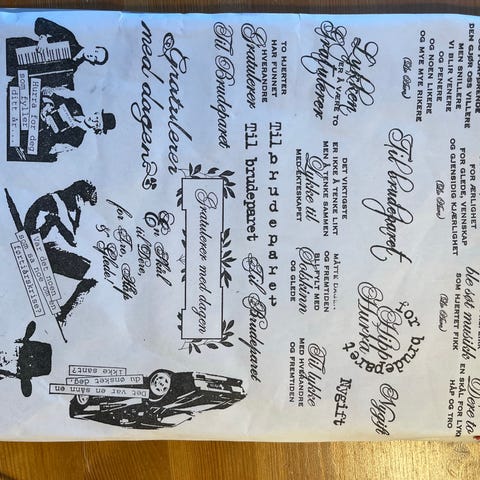 DEN GJØR OSS VILLERE
MEN SNILLERE
VI BLIR VENERE
OG PENERE
OG NOEN LIKERE
OG MYE MYE RIKERE
FOR ÆRLIGHET
FOR GLEDE, VENNSKAP
OG GJENSIDIG KJÆRLIGHET
ble søt musikk
SOM HJERTET FIKK
Dere to
EN SKÅL FOR LYKKE
HÅP OG TRO
Lykken
ER Å VÆRE TO
Gratulerer
Til brudeparet
for brudeparet
Hipp
Hurra
Nygift
Nygift
TO HJERTER
HAR FUNNET
HVERANDRE
Gratulerer
DET VIKTIGSTE
ER IKKE Å TENKE LIKT
MEN Å TENKE SAMMEN
Lykke til
MED EKTESKAPET
MÅTTE
OG FREMTIDEN
BLI FYLT MED
Solskinn
OG GLEDE
Til lykke
MED HVERANDRE
OG FREMTIDEN
Til Brudeparet
Til brudeparet
Til brudeparet
Til Brudeparet
Gratulerer
med dagen
Gratulerer med dagen
En Skål
til Dere,
for Tro, Håp
& Glede!
Hurra for deg
som fyller
ditt år..
Var det noen
som sa noe om
fott&aring;rskrise?
Det var en sånn en
du ønsket deg,
ikke sant?